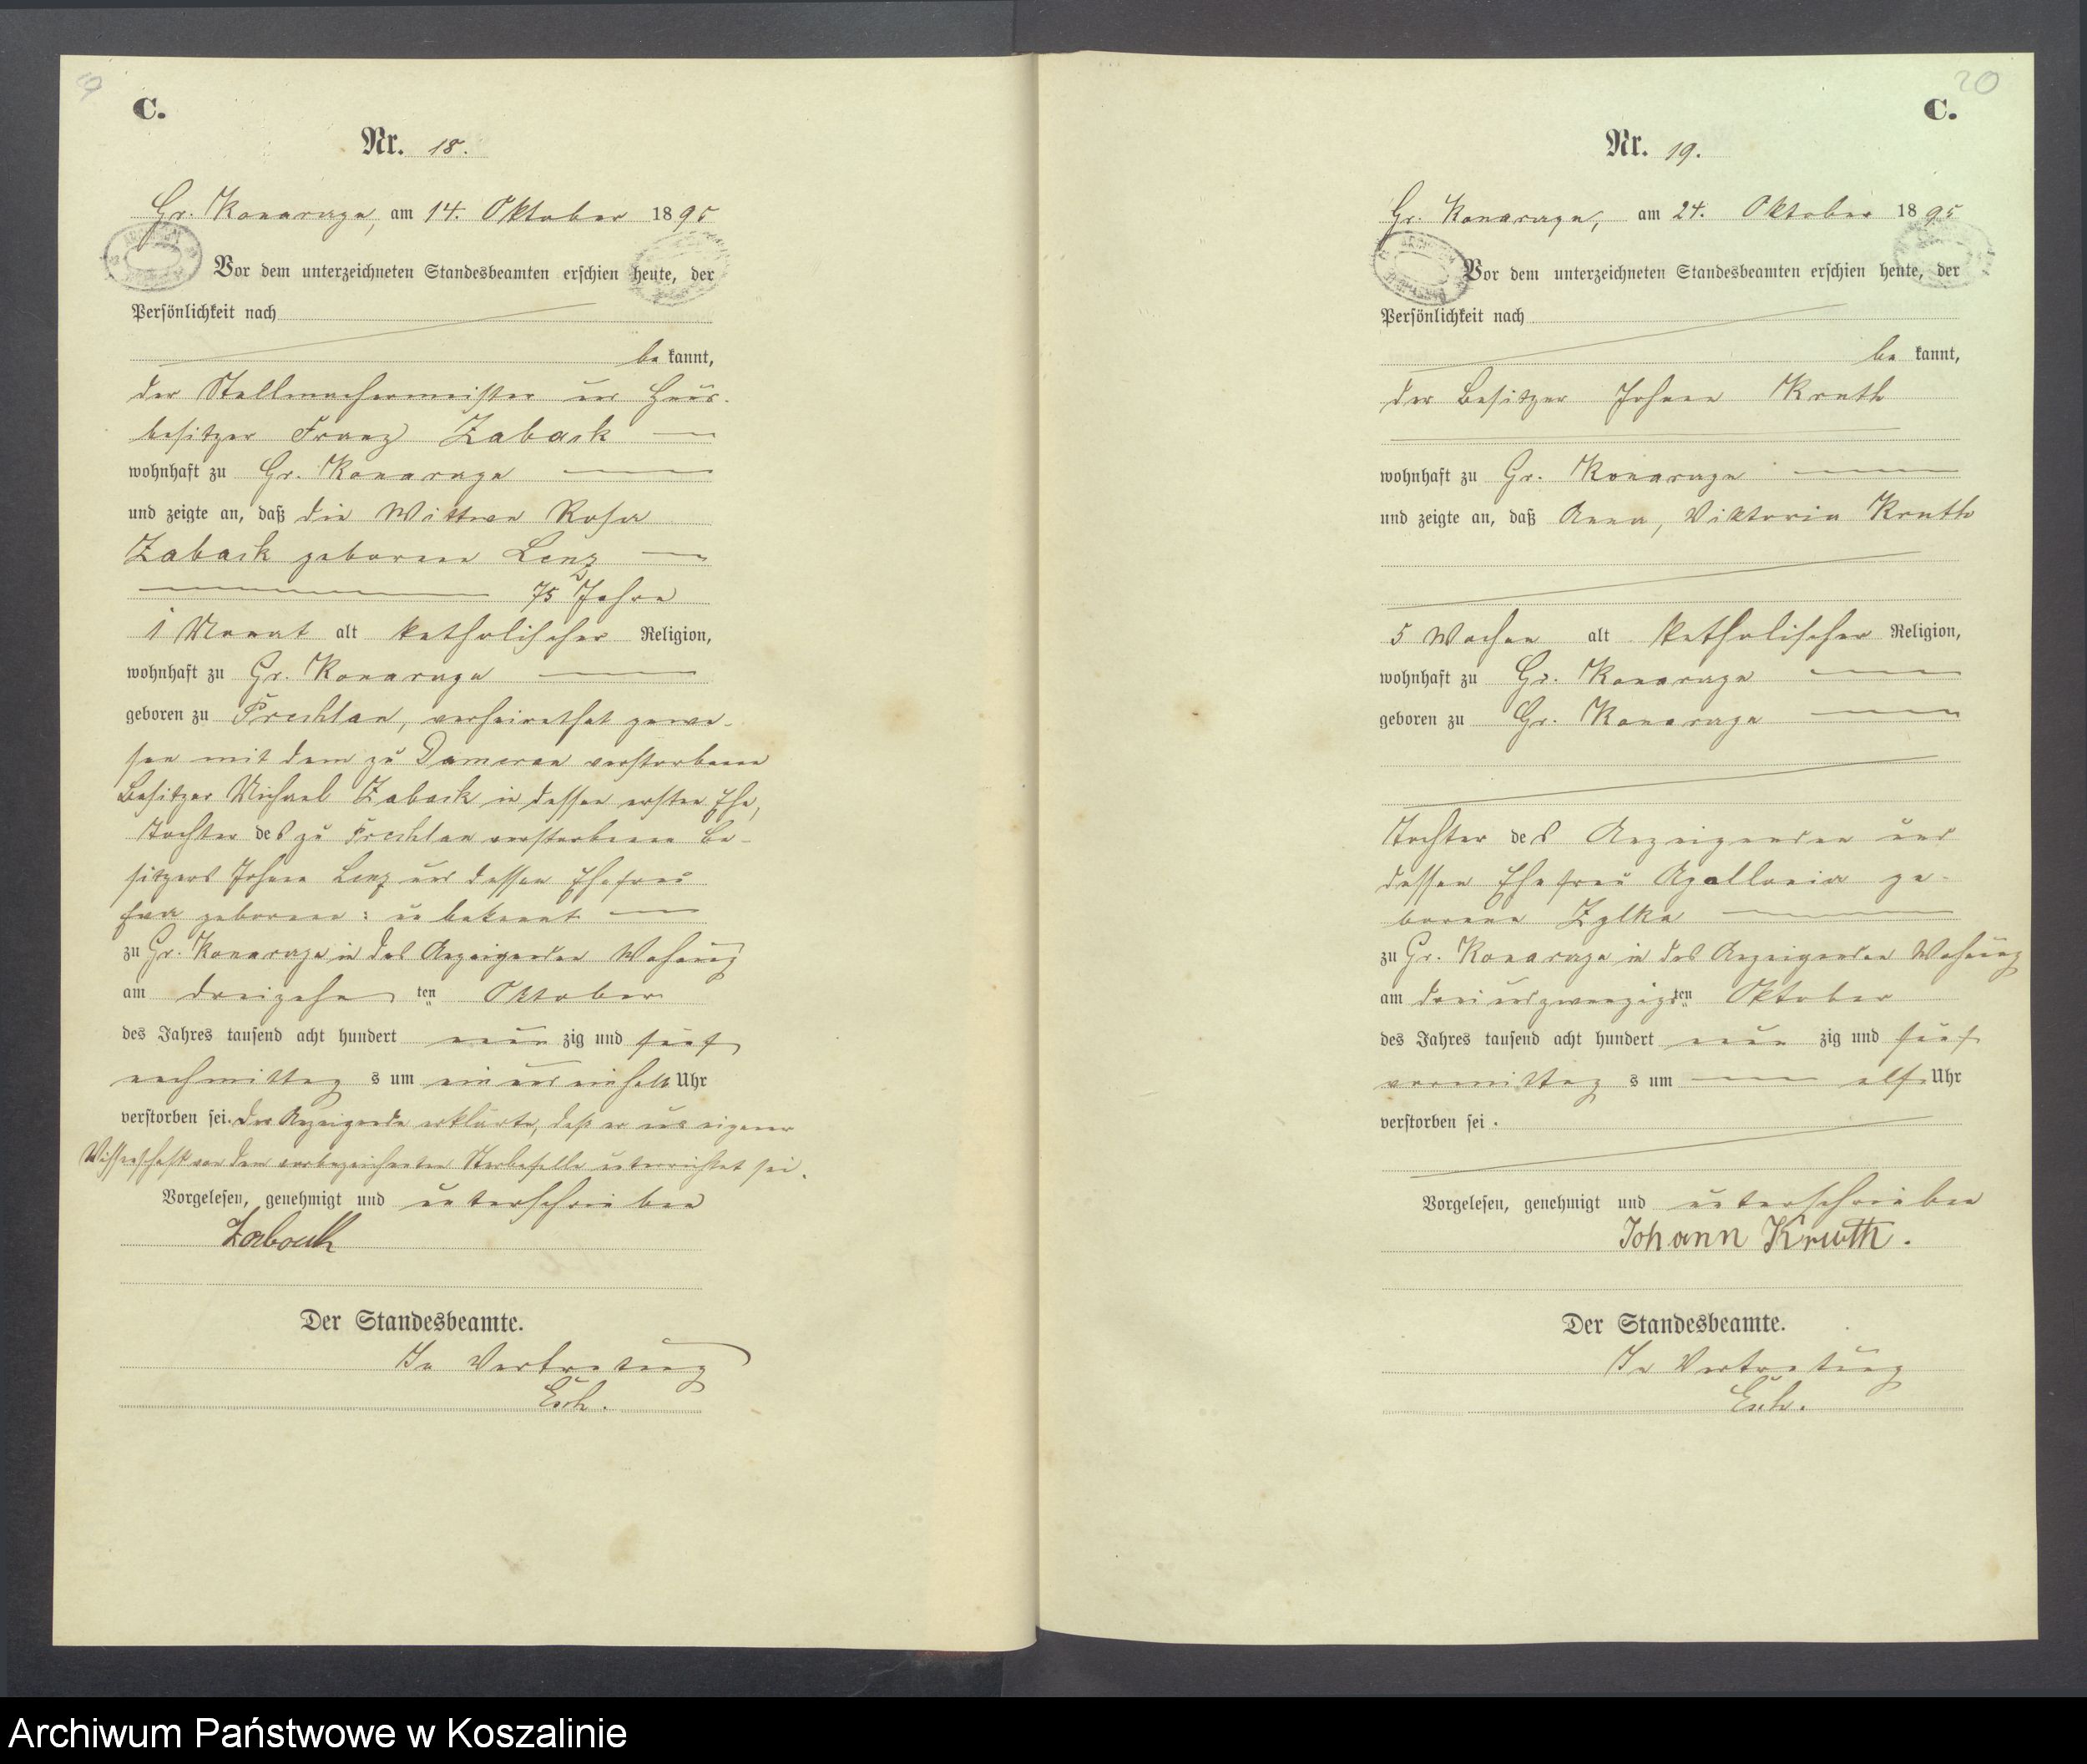 C.
Nr. 18.
Gr. Konarczyn, am 14. Oktober 1895
Vor dem unterzeichneten Standesbeamten erschien heute, der
Persönlichkeit nach
be kannt,
der Stellmachermeister und Haus-
besitzer Franz Zaback
wohnhaft zu Gr. Konarczyn
und zeigte an, daß die Wittwe Rosa
Zaback geborene Lenz
75 Jahre
1 Monat alt katholischer Religion,
wohnhaft zu Gr. Konarczyn
geboren zu Prechlau, verheirathet gewe-
sen mit dem zu Damerau verstorbenen
Besitzer Michael Zaback in dessen erster Ehe,
Tochter des zu Prechlau verstorbenen Be-
sitzers Johann Lenz und dessen Ehefrau
Eva geborene: unbekannt
zu Gr. Konarczyn in des Anzeigenden Wohnung
am dreizehn ten Oktober
des Jahres tausend acht hundert neun zig und fünf
nachmittag s um ein und ein halb Uhr
verstorben sei. Der Anzeigende erklärte, daß er aus eigener
Wissenschaft von dem vorbezeichneten Sterbefalle unterrichtet sei.
Vorgelesen, genehmigt und unterschrieben
Zaback
Der Standesbeamte.
In Vertretung
C.
20
Nr. 19.
Gr. Konarczyn, am 24. Oktober 1895
Vor dem unterzeichneten Standesbeamten erschien heute, der
Persönlichkeit nach
be kannt,
der Besitzer Johann Kruth
wohnhaft zu Gr. Konarczyn
und zeigte an, daß Anna, Viktoria Kruth
5 Wochen alt katholischer Religion,
wohnhaft zu Gr. Konarczyn
geboren zu Gr. Konarczyn
Tochter des Anzeigenden und
dessen Ehefrau Apollonia ge-
borene Zylka
zu Gr. Konarczyn in des Anzeigenden Wohnung
am dreiundzwanzigsten Oktober
des Jahres tausend acht hundert neun zig und fünf
vormittag s um elf Uhr
verstorben sei.
Vorgelesen, genehmigt und unterschrieben
Johann Kruth.
Der Standesbeamte.
In Vertretung
Archiwum Państwowe w Koszalinie